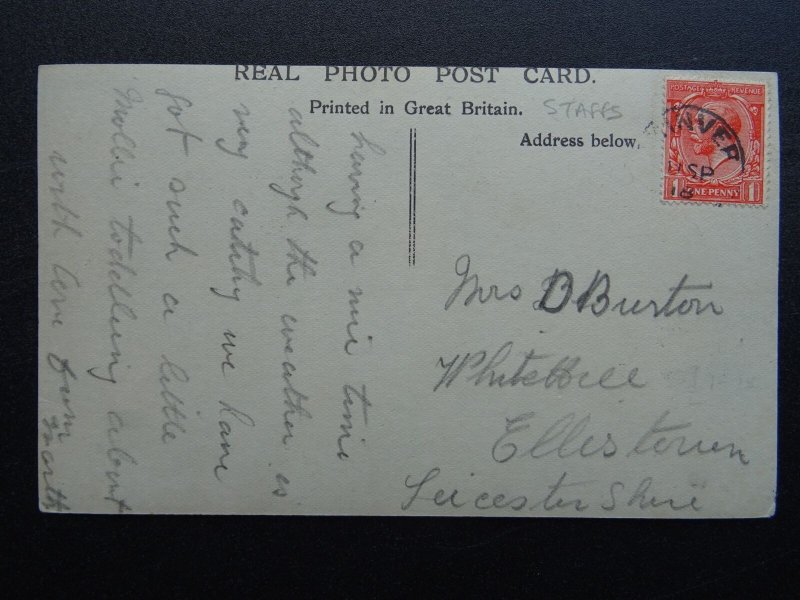 REAL PHOTO POST CARD.
Printed in Great Britain.
STAFFS
Address below,
POSTAGE REVENUE
ONE PENNY
1
1
SP
18
having a nice time
although the weather is
very catchy we have
got such a little
Mollie todelling about
with love from
Mrs B Burton
Whitehill
Ellistown
Leicestershire